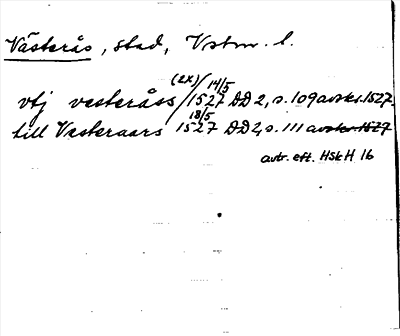 Västerås, stad, Vstm. l.
(2x) 14/5
vtj vesteråss / 1527 DD 2, s. 109 avskr. 1527.
18/5
till Vesteraars 1527 DD 2, s. 111 avskr. 1527
avtr. eft. HSkH 16